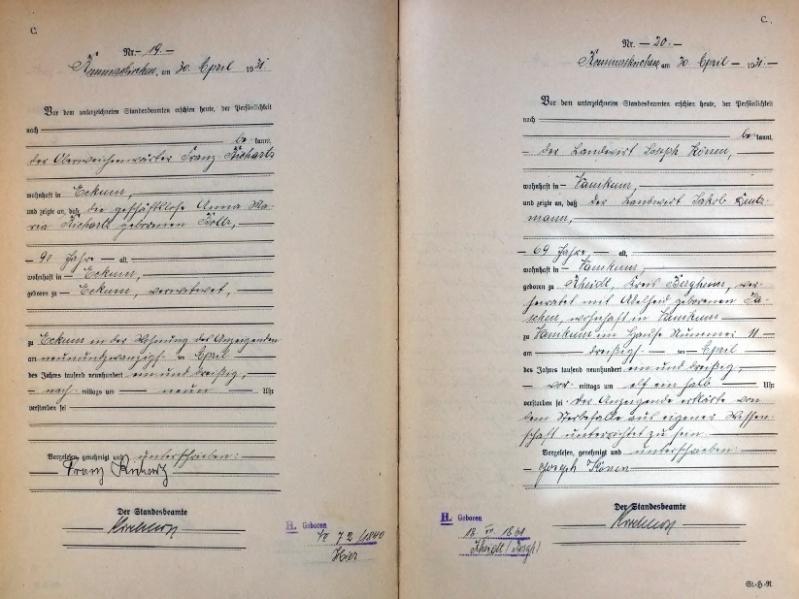 C.
Nr. 19.
am 30 April 1931
Vor dem unterzeichneten Standesbeamten erschien heute, der Persönlichkeit
nach
be kannt,
der Oberweichenwärter Franz Richartz
wohnhaft in Eckum,
und zeigte an, daß die geschäftslose Anna Ma-
ria Richartz geborenen
90 Jahre alt,
wohnhaft in Eckum,
geboren zu Eckum, verwitwet,
zu Eckum in der Wohnung des Anzeigenden
am neunundzwanzigst. April
des Jahres tausend neunhundert ein und dreißig,
nach mittags um neun Uhr
verstorben sei
Vorgelesen, genehmigt und unterschrieben:
Franz Richartz
Der Standesbeamte
H. Geboren
72/1840
Hier
C.
Nr. 20.
am 30 April 1931.
Vor dem unterzeichneten Standesbeamten erschien heute, der Persönlichkeit
nach
be kannt,
der Landwirt Joseph Könen,
wohnhaft in Vanikum,
und zeigte an, daß der Landwirt Jakob
mann,
69 Jahre alt,
wohnhaft in Vanikum,
geboren zu Rheidt, Kreis Bergheim, ver-
heiratet mit Adelheid geborenen
wohnhaft in Vanikum
zu Vanikum im Hause Nummer 11
am dreißigst. April
des Jahres tausend neunhundert ein und dreißig,
vor mittags um elf ein halb Uhr
verstorben sei. Der Anzeigende erklärte von
dem Sterbefalle aus eigener Wissen-
schaft unterrichtet zu sein.
Vorgelesen, genehmigt und unterschrieben:
Joseph Könen
Der Standesbeamte
H. Geboren
18. 1861
Rheidt (Bergh)
St-H-R